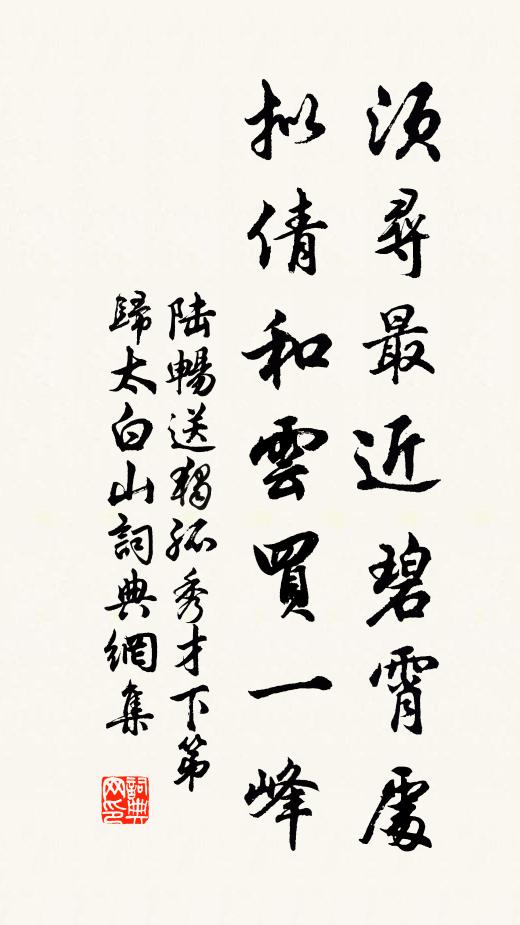 须尋最近碧霄處
拟倩和雲買一峰
陆暢送獨孤秀才下第
歸太白山詞典網集
詞典网印